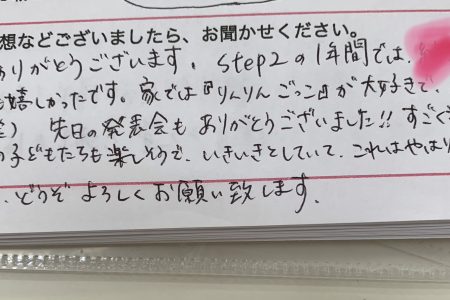 想などございましたら、お聞かせください。
ありがとうございます。step2の1年間では、
も嬉しかったです。家では『りんりんごっこ』が大好きで、
先日の発表会もありがとうございました!!すごく
の子どもたちも楽しそうで、いきいきとしていて、これはやはり
、どうぞよろしくお願い致します。